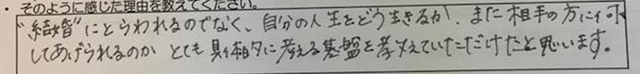 ・そのように感じた理由を教えてください。
"結婚"にとらわれるのでなく、自分の人生をどう生きるか、また相手の方に何が
してあげられるのか とても具体的に考える基盤を教えていただけたと思います。